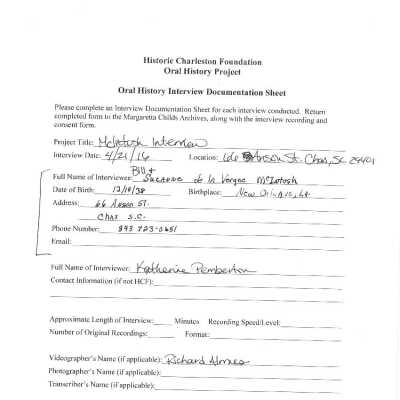 Historic Charleston Foundation
Oral History Project
Oral History Interview Documentation Sheet
Please complete an Interview Documentation Sheet for each interview conducted. Return
completed form to the Margaretta Childs Archives, along with the interview recording and
consent form.
Project Title: McIntosh Interview
Interview Date: 4/21/16 Location: 66 Anson St. Chas, SC 29401
Bill &
Full Name of Interviewee: Suzanne de la Vergne McIntosh
Date of Birth: 12/18/38 Birthplace: New Orleans, La
Address: 66 Anson St.
Chas S.C.
Phone Number: 843 723-0651
Email:
Full Name of Interviewer: Katherine Pemberton
Contact Information (if not HCF):
Approximate Length of Interview: Minutes Recording Speed/Level:
Number of Original Recordings: Format:
Videographer's Name (if applicable): Richard Almes
Photographer's Name (if applicable):
Transcriber's Name (if applicable):